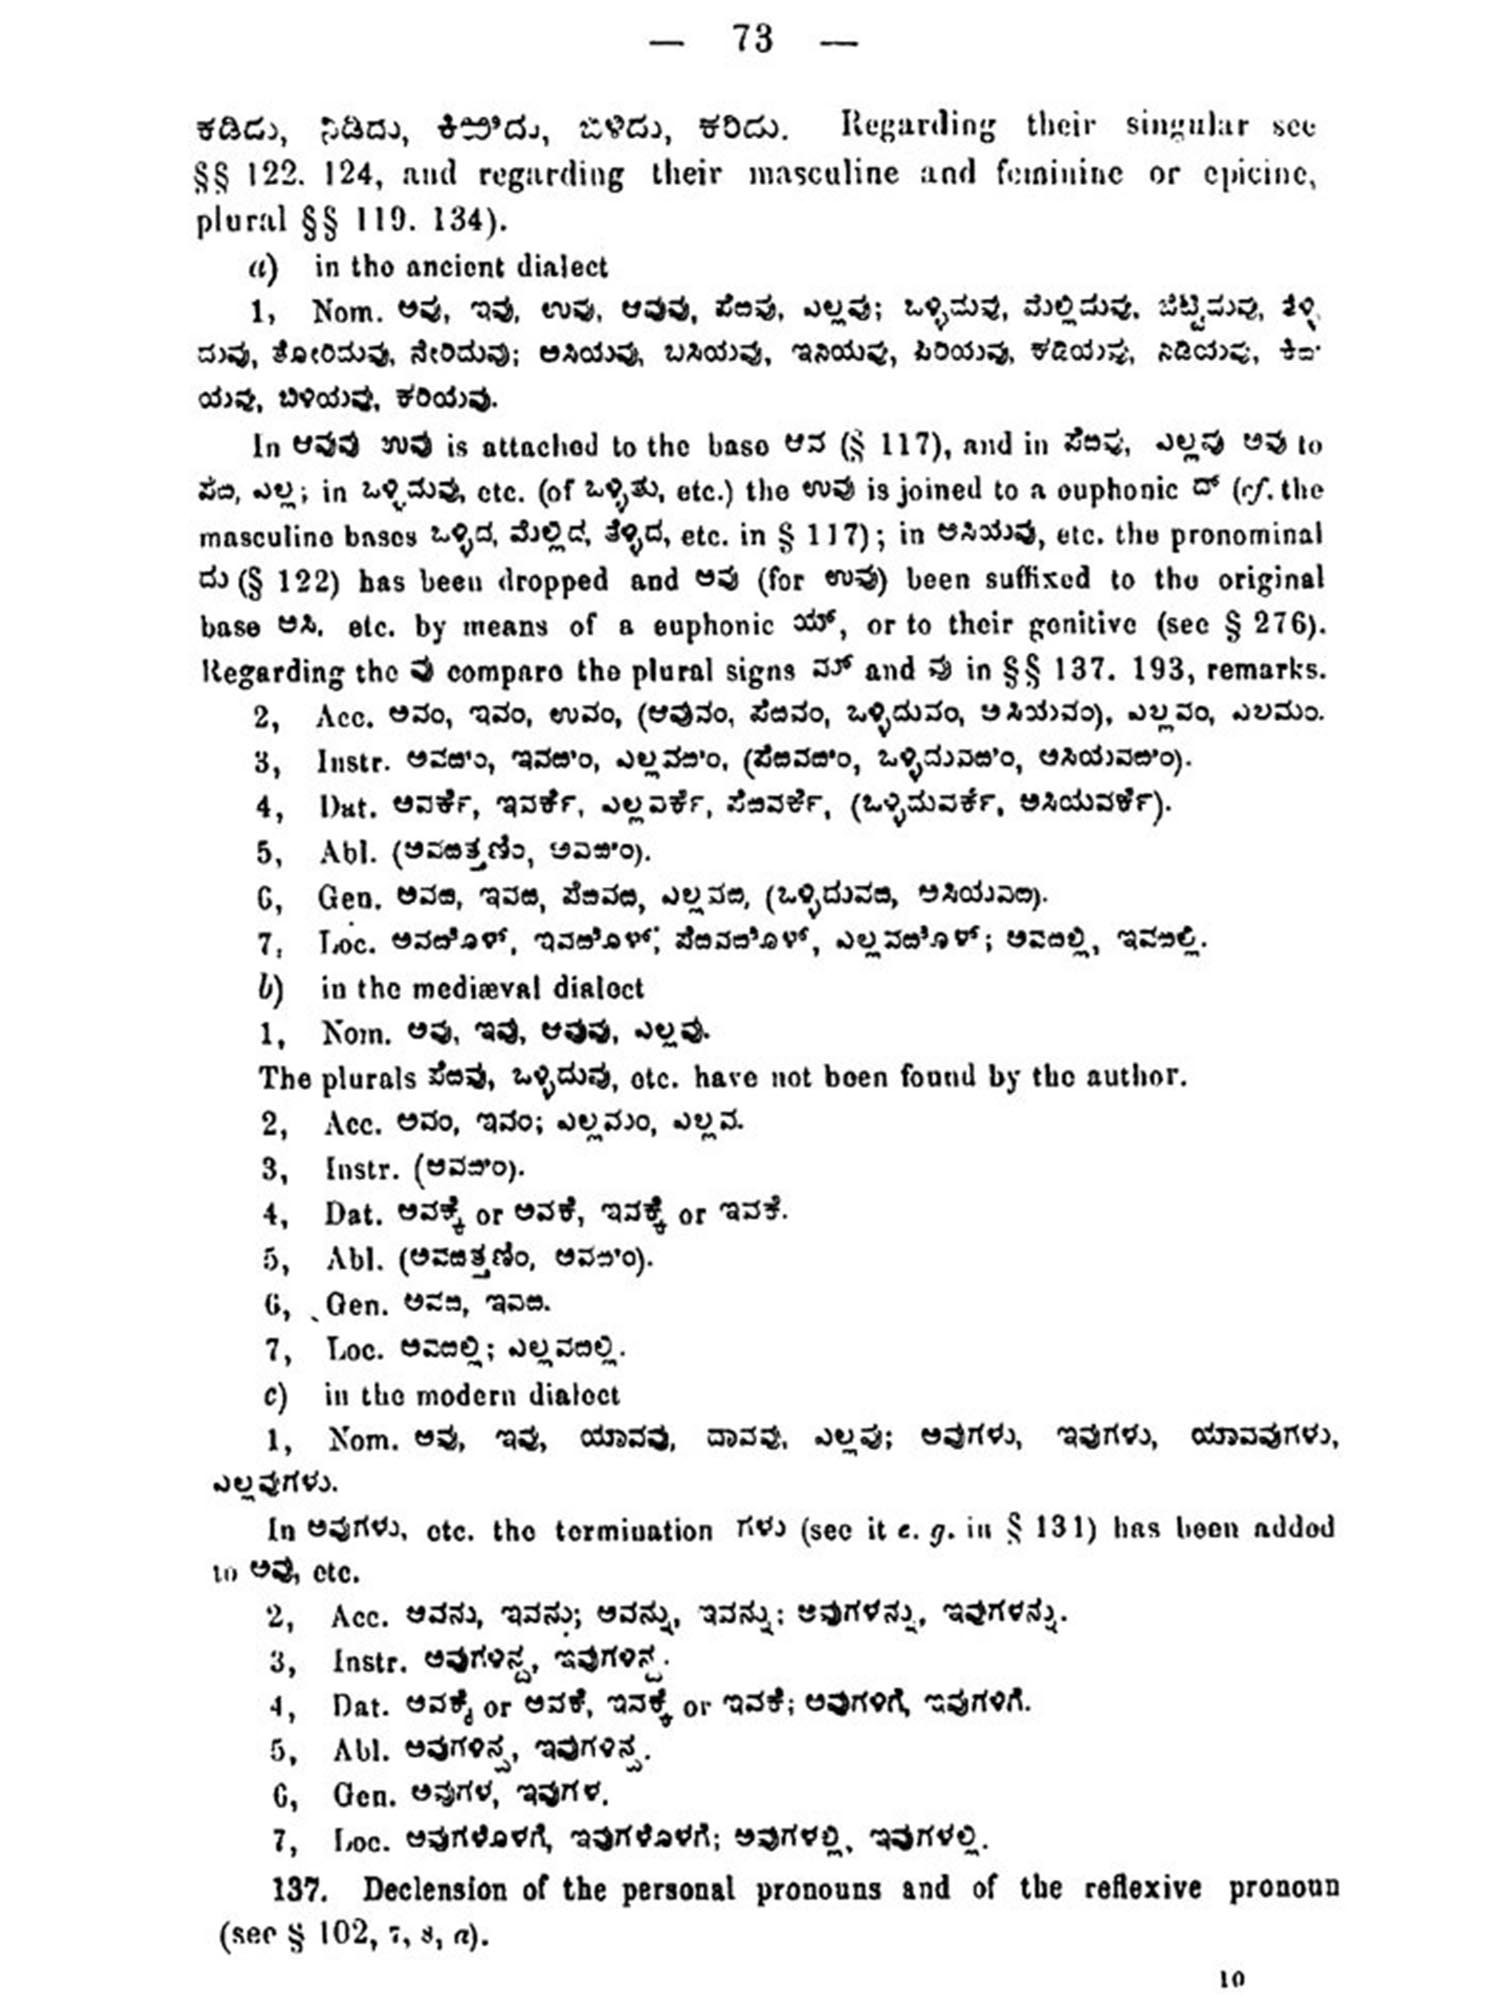 — 73 —
ಕಡಿದು, ನಿಡಿದು, ಕಿಱಿದು, ಬಿಳಿದು, ಕರಿದು. Regarding their singular see
§§ 122. 124, and regarding their masculine and feminine or epicine,
plural §§ 119. 134).
a) in the ancient dialect
1, Nom. ಅವು, ಇವು, ಉವು, ಆವುವು, ಪೆಱವು, ಎಲ್ಲವು; ಒಳ್ಳಿದುವು, ಮೆಲ್ಲಿದುವು, ಬೆಟ್ಟಿದುವು, ತೆಳ್ಳಿ
ದುವು, ತೋರಿದುವು, ನೇರಿದುವು; ಅಸಿಯವು, ಬಸಿಯವು, ಇನಿಯವು, ಪಿರಿಯವು, ಕಡಿಯವು, ನಿಡಿಯವು, ಕಿಱಿ
ಯವು, ಬಿಳಿಯವು, ಕರಿಯವು.
In ಆವುವು ಉವು is attached to the base ಆವ (§ 117), and in ಪೆಱವು, ಎಲ್ಲವು ಅವು to
ಪೆಱ, ಎಲ್ಲ; in ಒಳ್ಳಿದುವು, etc. (of ಒಳ್ಳಿತು, etc.) the ಉವು is joined to a euphonic ದ್ (cf. the
masculine bases ಒಳ್ಳಿದ, ಮೆಲ್ಲಿದ, ತೆಳ್ಳಿದ, etc. in § 117); in ಅಸಿಯವು, etc. the pronominal
ದು (§ 122) has been dropped and ಅವು (for ಉವು) been suffixed to the original
base ಅಸಿ, etc. by means of a euphonic ಯ್, or to their genitive (see § 276).
Regarding the ವು compare the plural signs ಮ್ and ವು in §§ 137. 193, remarks.
2, Acc. ಅವಂ, ಇವಂ, ಉವಂ, (ಆವುವಂ, ಪೆಱವಂ, ಒಳ್ಳಿದುವಂ, ಅಸಿಯವಂ), ಎಲ್ಲವಂ, ಎಲಮುಂ.
3, Instr. ಅವಱಿಂ, ಇವಱಿಂ, ಎಲ್ಲವಱಿಂ, (ಪೆಱವಱಿಂ, ಒಳ್ಳಿದುವಱಿಂ, ಅಸಿಯವಱಿಂ).
4, Dat. ಅವರ್ಕೆ, ಇವರ್ಕೆ, ಎಲ್ಲವರ್ಕೆ, ಪೆಱವರ್ಕೆ, (ಒಳ್ಳಿದುವರ್ಕೆ, ಅಸಿಯವರ್ಕೆ).
5, Abl. (ಅವಱತ್ತಣಿಂ, ಅವಱಿಂ).
6, Gen. ಅವಱ, ಇವಱ, ಪೆಱವಱ, ಎಲ್ಲವಱ, (ಒಳ್ಳಿದುವಱ, ಅಸಿಯವಱ).
7, Loc. ಅವಱೊಳ್, ಇವಱೊಳ್, ಪೆಱವಱೊಳ್, ಎಲ್ಲವಱೊಳ್; ಅವಱಲ್ಲಿ, ಇವಱಲ್ಲಿ.
b) in the mediæval dialect
1, Nom. ಅವು, ಇವು, ಆವುವು, ಎಲ್ಲವು.
The plurals ಪೆಱವು, ಒಳ್ಳಿದುವು, etc. have not been found by the author.
2, Acc. ಅವಂ, ಇವಂ; ಎಲ್ಲಮಂ, ಎಲ್ಲವ.
3, Instr. (ಅವಱಿಂ).
4, Dat. ಅವಕ್ಕೆ or ಅವಕೆ, ಇವಕ್ಕೆ or ಇವಕೆ.
5, Abl. (ಅವಱತ್ತಣಿಂ, ಅವಱಿಂ).
6, Gen. ಅವಱ, ಇವಱ.
7, Loc. ಅವಱಲ್ಲಿ; ಎಲ್ಲವಱಲ್ಲಿ.
c) in the modern dialect
1, Nom. ಅವು, ಇವು, ಯಾವವು, ದಾವವು, ಎಲ್ಲವು; ಅವುಗಳು, ಇವುಗಳು, ಯಾವವುಗಳು,
ಎಲ್ಲವುಗಳು.
In ಅವುಗಳು, etc. the termination ಗಳು (see it e. g. in § 131) has been added
to ಅವು, etc.
2, Acc. ಅವನು, ಇವನು; ಅವನ್ನು, ಇವನ್ನು; ಅವುಗಳನ್ನು, ಇವುಗಳನ್ನು.
3, Instr. ಅವುಗಳಿನ್ದ, ಇವುಗಳಿನ್ದ.
4, Dat. ಅವಕ್ಕೆ or ಅವಕೆ, ಇವಕ್ಕೆ or ಇವಕೆ; ಅವುಗಳಿಗೆ, ಇವುಗಳಿಗೆ.
5, Abl. ಅವುಗಳಿನ್ದ, ಇವುಗಳಿನ್ದ.
6, Gen. ಅವುಗಳ, ಇವುಗಳ.
7, Loc. ಅವುಗಳೊಳಗೆ, ಇವುಗಳೊಳಗೆ; ಅವುಗಳಲ್ಲಿ, ಇವುಗಳಲ್ಲಿ.
137. Declension of the personal pronouns and of the reflexive pronoun
(see § 102, 7, 8, a).
10